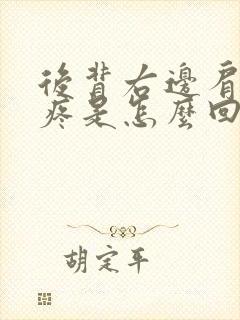 後背右邊肩
疼是怎麼回
胡定平